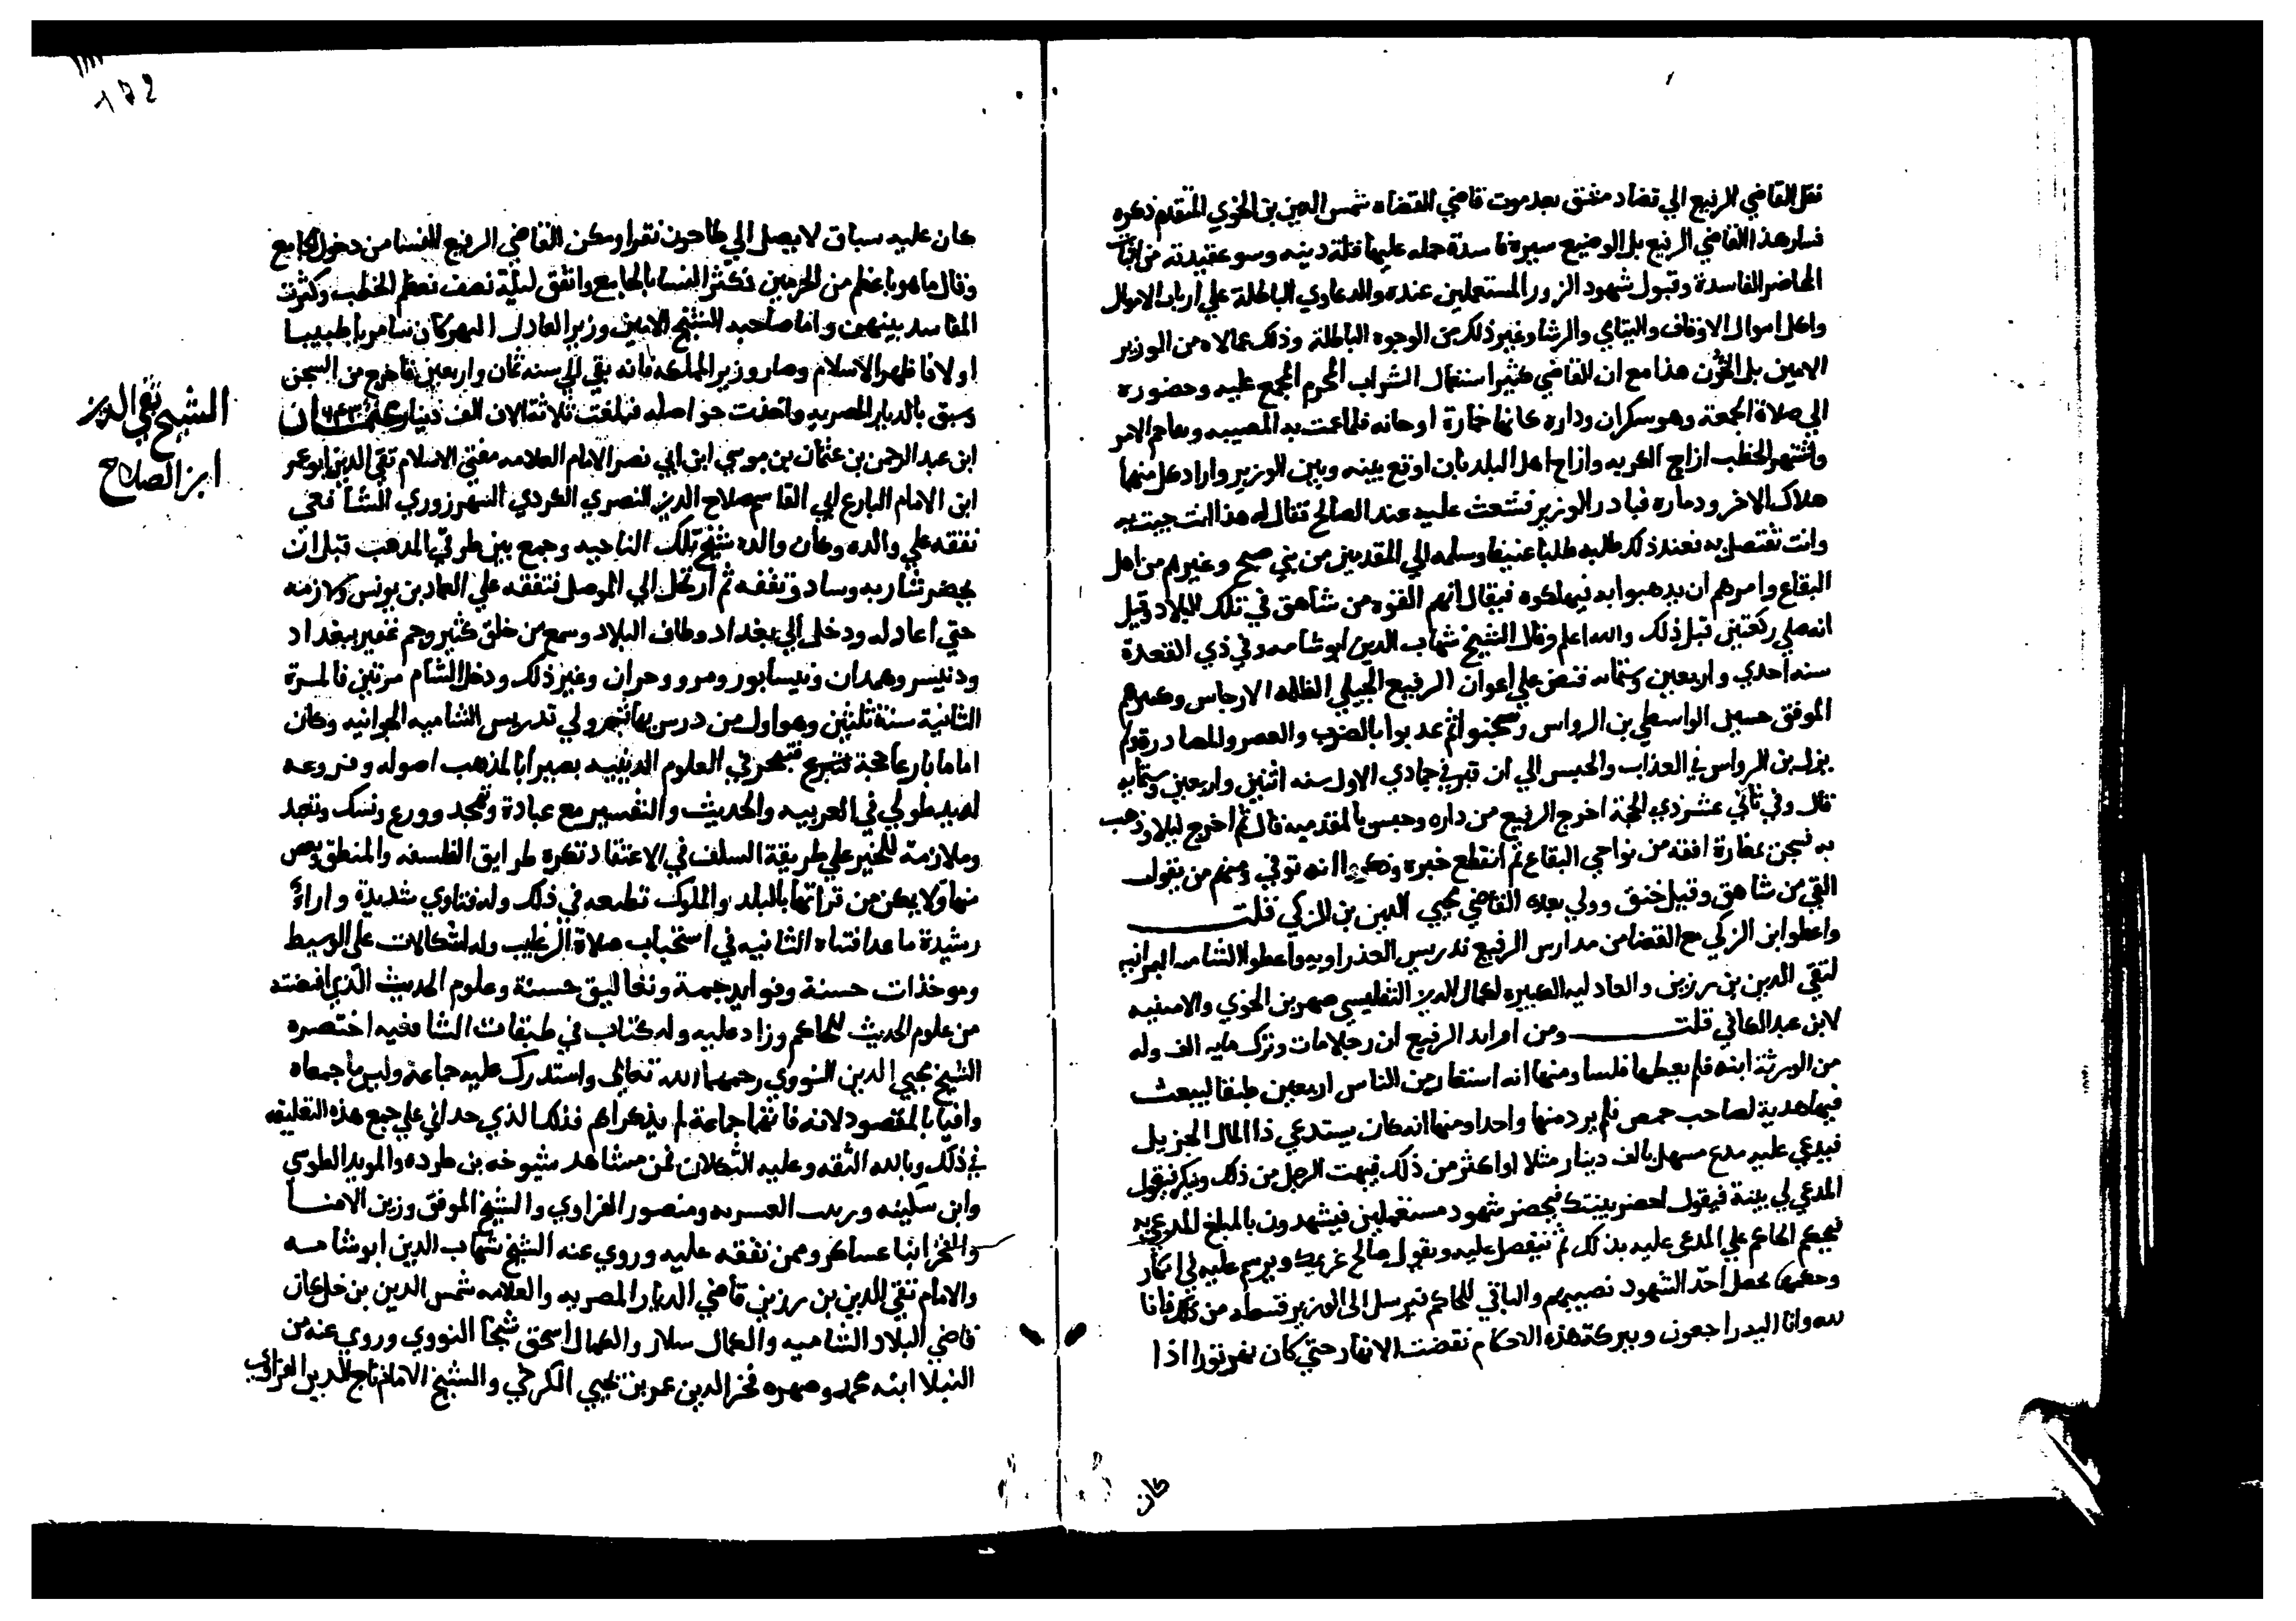 نقل القاضي الرفيع الي قضاء دمشق بعد موت قاضي القضاه شمس الدين بن الخوي المتقدم ذكره
فسار هذا القاضي الرفيع بل الوضيع سيرة فاسدة حمله عليها قلة دينه وسو عقيدته من اثبات
المحاضر الفاسدة وقبول شهود الزور المستعملين عنده والدعاوي الباطلة علي ارباب الاموال
واكل اموال الاوقاف واليتامي والرشا وغير ذلك من الوجوه الباطلة وذلك بممالاه من الوزير
الامين بل الخون هذا مع ان القاضي كثير استعمال الشراب المحرم المجمع عليه وحضوره
الي صلاة الجمعة وهو سكران وداره كانها خمارة او حانه فلما عمت به المصيبه وتعاظم الامر
واشتهر الخطب ازاح الكربه وازاح اهل البلد بان اوقع بينه وبين الوزير واراد كل منهما
هلاك الاخر ودماره فبادر الوزير فشعث عليه عند الصالح فقال له هذا انت جيت به
وانت تفتصل به فعند ذلك طلبه طلبا عنيفا وسلمه الي المقدمين من بني صبح وغيرهم من اهل
البقاع وامرهم ان يذهبوا به فيهلكوه فيقال انهم القوه من شاهق في تلك البلاد وقيل
انه صلي ركعتين قبل ذلك والله اعلم وقال الشيخ شهاب الدين ابو شامه وفي ذي القعدة
سنه احدي واربعين وستمايه قبض علي اعوان الرفيع الجيلي الظلمه الارجاس وكبيرهم
الموفق حسين الواسطي بن الرواس وسجنوا ثم عذبوا بالضرب والعصر والمصادرة ولم
يزل بن الرواس في العذاب والحبس الي ان قبر في جمادي الاول سنه اثنين واربعين وستمايه
قال وفي ثاني عشر ذي الحجة اخرج الرفيع من داره وحبس بالمقدميه قال ثم اخرج ليلا وذهب
به فسجن بمغارة افقه من نواحي البقاع ثم انقطع خبره وذكروا انه توفي ومنهم من يقول
القي من شاهق وقيل خنق وولي بعده القاضي محيي الدين بن الزكي قلت
واعطوا ابن الزكي مع القضا من مدارس الرفيع تدريس العذراويه واعطوا الشاميه البرانيه
لتقي الدين بن رزين والعادليه الكبيره لكمال الدين التفليسي صهر بن الخوي والامينيه
لابن عبد الكافي قلت ومن اوابد الرفيع ان رجلا مات وترك مايه الف وله
من الورثة ابنه فلم يعطها فلسا ومنها انه استعار من الناس اربعين طبقا ليبعث
فيها هدية لصاحب حمص فلم يرد منها واحدا ومنها انه كان يستدعي ذا المال الجزيل
فيدعي عليه مدع مسهل بالف دينار مثلا او اكثر من ذلك فيبهت الرجل من ذلك وينكر فيقول
المدعي لي بينة فيقول احضر بينتك فيحضر شهود مستعملين فيشهدون بالمبلغ المدعي به
فيحكم الحاكم علي المدعي عليه بذلك ثم تنفصل عليه ويقول صالح غريمك ويرسم عليه
يحصل احد الشهود نصيبهم والباقي للحاكم فيرسل الي الوزير قسطه من ذلك فانا
لله وانا اليه راجعون وببركة هذه الاحكام نقضت الانهار حتي كان نهر ثورا اذا
كان
١٧٢
كان عليه سباق لا يصل الي طاحون مقرا ومكن القاضي الرفيع النسا من دخول الجامع
وقال ما هو باعظم من الحرمين فكثر النسا بالجامع واتفق ليلة نصف فعظم الخطب وكثرت
المفاسد بينهن واما صاحبه الشيخ الامين وزير العادل كان سامريا طبيبا
اولا فاظهر الاسلام وصار وزير المملكه فانه بقي الي سنه ثمان واربعين فاخرج من السجن
وسبق بالديار المصريه واخذت حواصله فبلغت ثلاثة الاف الف دينار عثمان
٦٤٣
ابن عبد الرحمن بن عثمان بن موسي ابن ابي نصر الامام العلامه مفتي الاسلام تقي الدين ابو عمر
ابن الامام البارع ابي القاسم صلاح الدين النصري الكردي الشهرزوري الشافعي
تفقه علي والده وكان والده شيخ تلك الناحيه وجمع بين طرفي المذهب قبل ان
يخضر شاربه وساد وتفقه ثم ارتحل الي الموصل فتفقه علي العماد بن يونس ولازمه
حتي اعاد له ودخل الي بغداد وطاف البلاد وسمع من خلق كثير وجم غفير ببغداد
ودنيسر وهمدان ونيسابور ومرو وحران وغير ذلك ودخل الشام مرتين فالمرة
الثانية سنة ثلثين وهو اول من درس بها ثم ولي تدريس الشاميه الجوانيه وكان
اماما بارعا حجة متبحر في العلوم الدينيه بصيرا بالمذهب اصوله وفروعه
له يد طولي في العربيه والحديث والتفسير مع عبادة وتهجد وورع ونسك وتعبد
وملازمة للخير علي طريقة السلف في الاعتقاد تكره طرايق الفلسفه والمنطق ويغض
منها ولا يمكن من قراتها بالبلد والملوك تطيعه في ذلك وله فتاوي سديدة واراء
رشيدة ما عدا فتياه الثانيه في استحباب صلاة الرغايب وله اشكالات علي الوسيط
وموخذات حسنة وفوايد جمة وتعاليق حسنة وعلوم الحديث الذي اقتضبه
من علوم الحديث للحاكم وزاد عليه وله كتاب في طبقات الشافعيه اختصره
الشيخ محيي الدين النووي رحمهما الله تعالي واستدرك عليه جماعة وليس ما جمعاه
وافيا بالمقصود لانه فاتهما جماعة لم يذكراهم فذلك الذي حداني علي جمع هذه التعليقه
في ذلك وبالله الثقه وعليه التكلان فمن مشاهد شيوخه بن طبرزد والمويد الطوسي
وابن سكينه وزينب الشعريه ومنصور الفراوي والشيخ الموفق وزين الامنا
والفخر ابنا عساكر وممن تفقه عليه وروي عنه الشيخ شهاب الدين ابو شامه
والامام تقي الدين بن رزين قاضي الديار المصريه والعلامه شمس الدين بن خلكان
قاضي البلاد الشاميه والكمال سلار والكمال اسحق شيخا النووي وروي عنه من
النبلا ابنه محمد وصهره فخر الدين عمر بن يحيي الكرجي والشيخ الامام تاج الدين الفزاري
الشيخ تقي الدين
ابن الصلاح